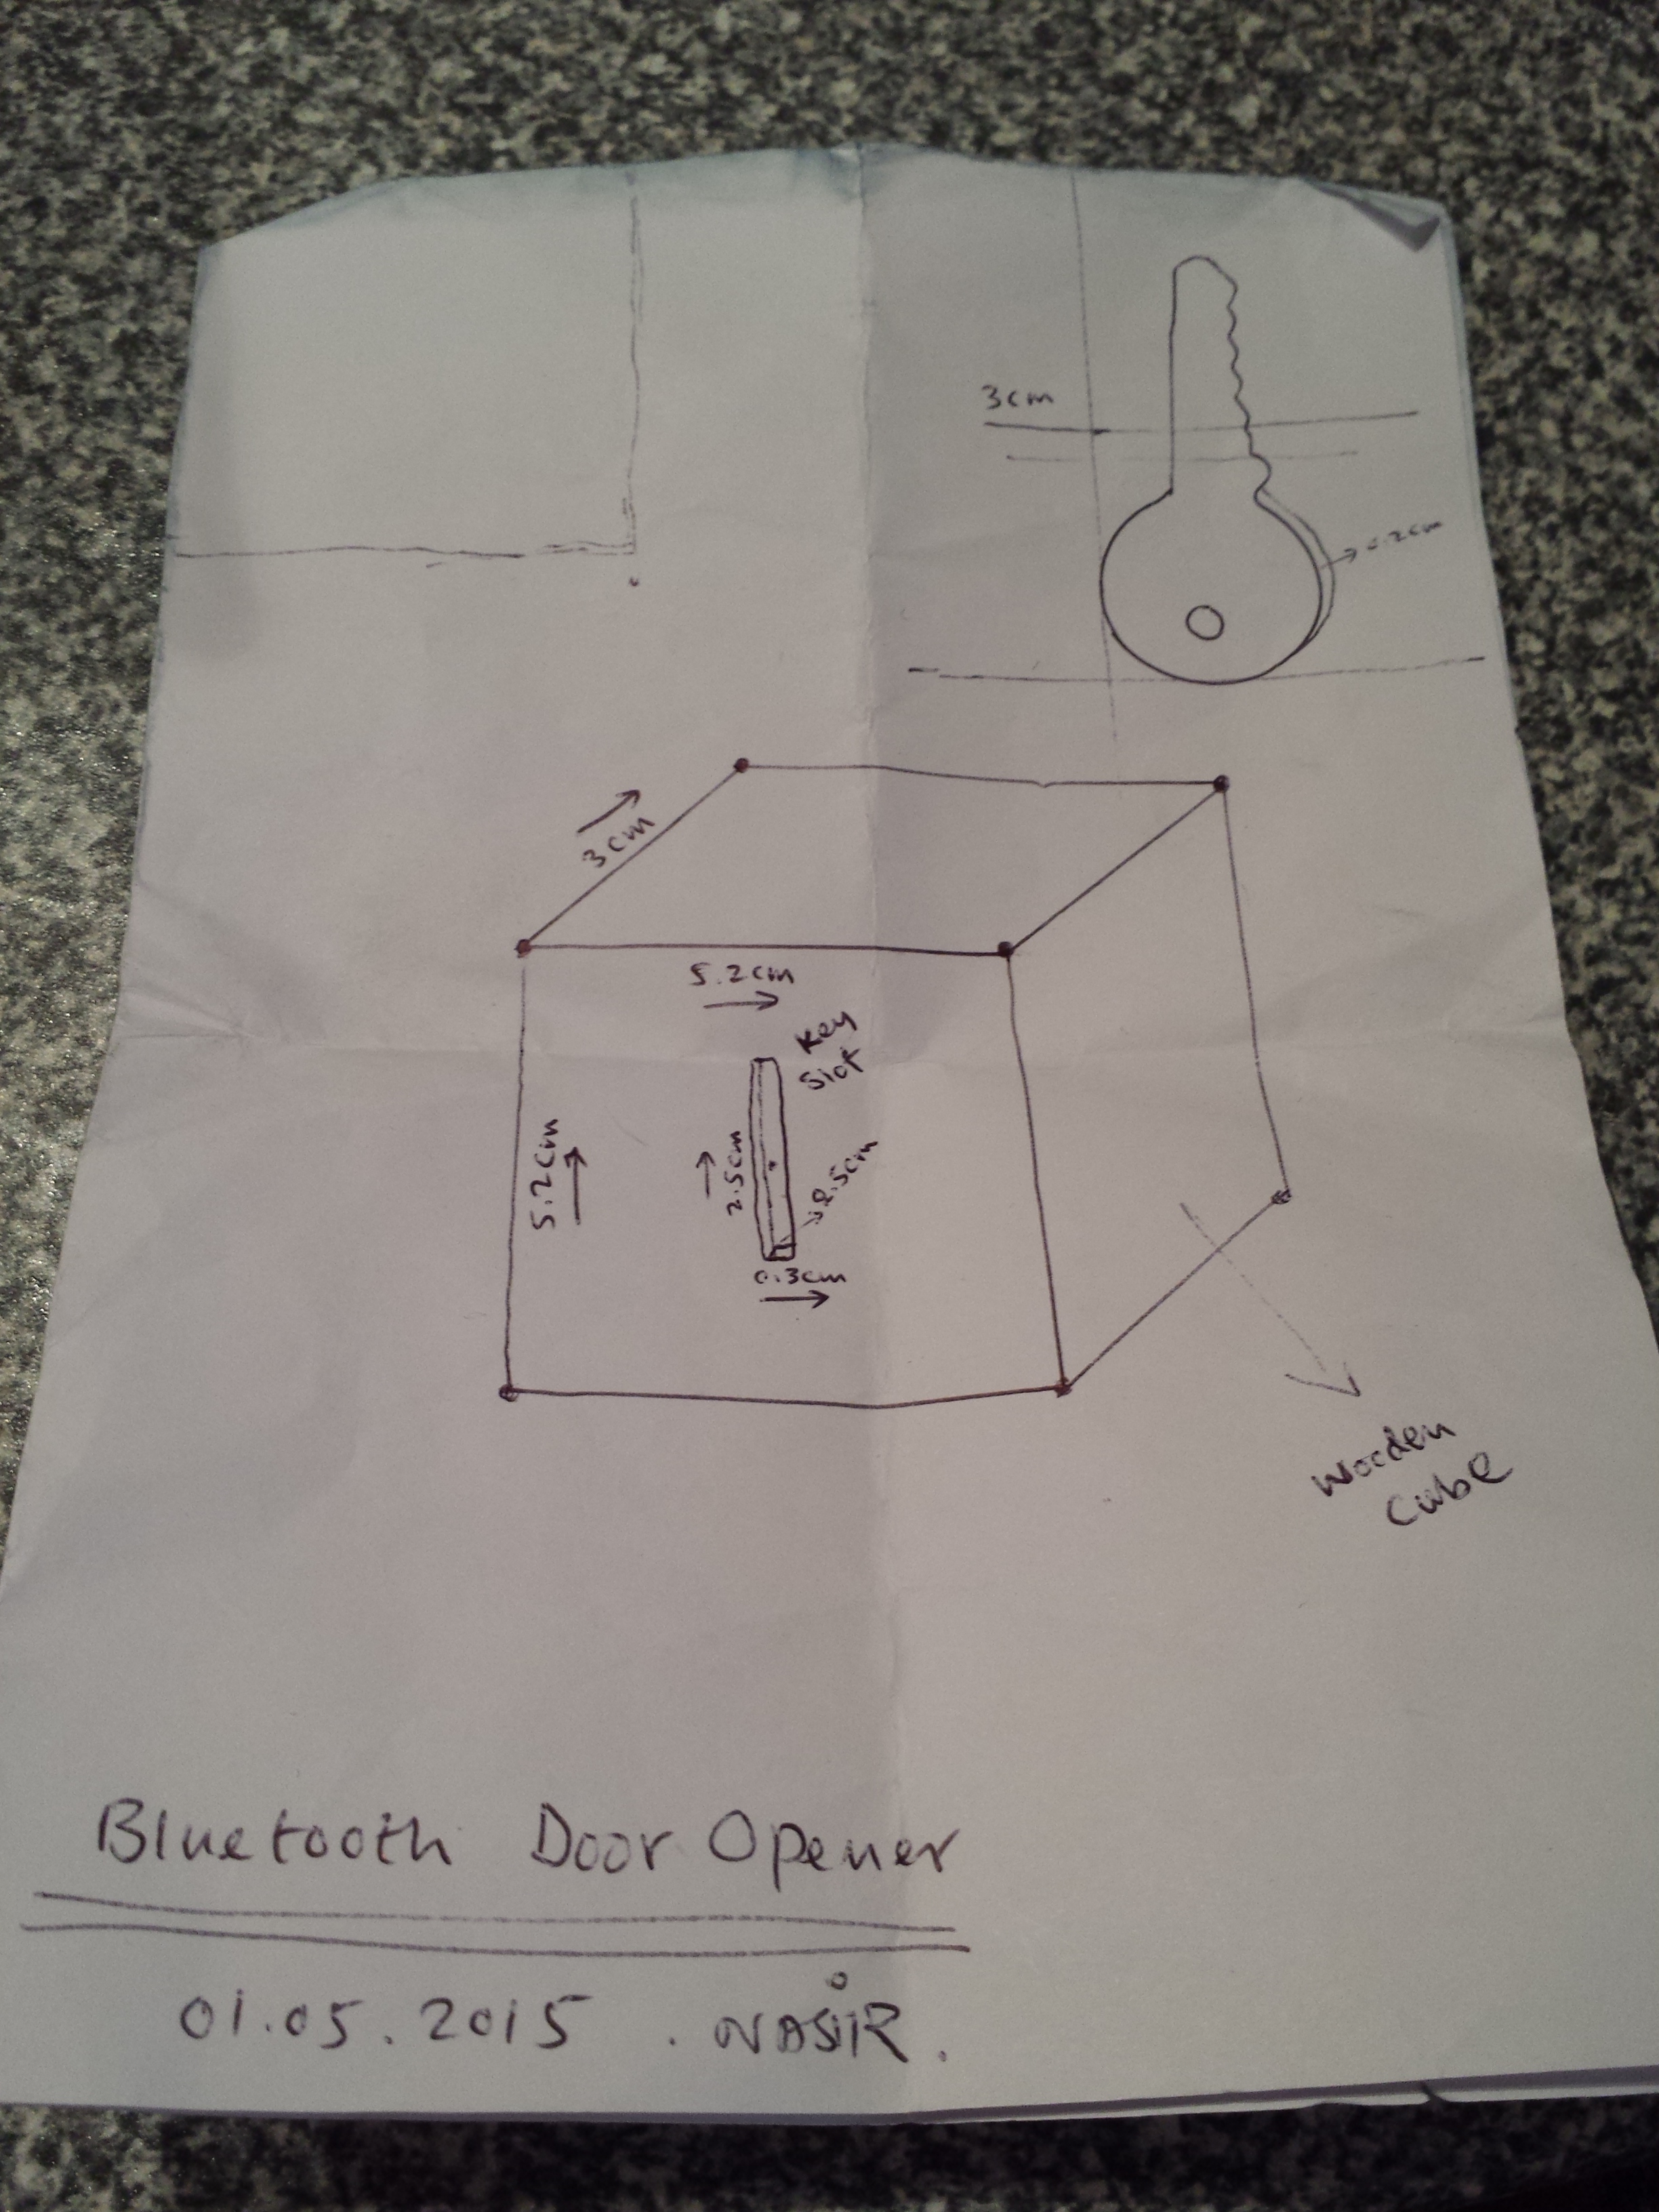 3cm
0.2cm
3cm
5.2cm
Key
Slot
5.2cm
2.5cm
2.5cm
0.3cm
Wooden
Cube
Bluetooth Door Opener
01.05.2015 . NASIR.